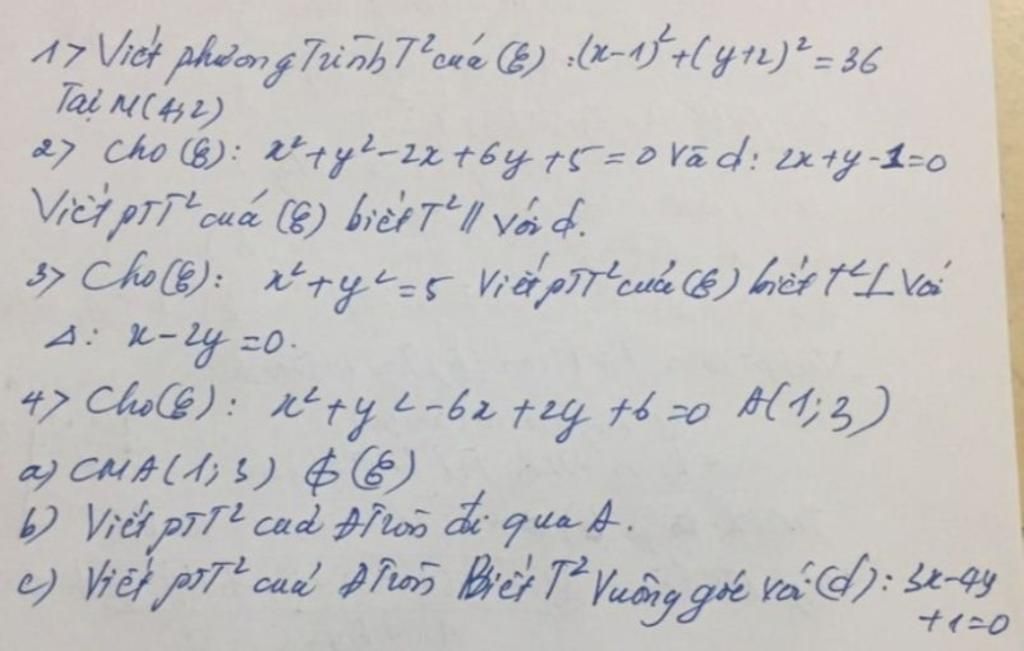 1> Viết phương Trình T² của (C) : (x-1)² + (y+2)² = 36
Tại M(4;2)
2> Cho (C): x² + y² - 2x + 6y + 5 = 0 Và d: 2x + y - 1 = 0
Viết pTT² của (C) biết T² // với d.
3> Cho (C): x² + y² = 5 Viết pTT² của (C) biết T² ⊥ với
Δ: x - 2y = 0.
4> Cho (C): x² + y² - 6x + 2y + 6 = 0 A(1;3)
a) CM A(1;3) ∉ (C)
b) Viết pTT² của ĐTròn đi qua A.
c) Viết pTT² của ĐTròn Biết T² Vuông góc với (d): 3x - 4y
+ 1 = 0